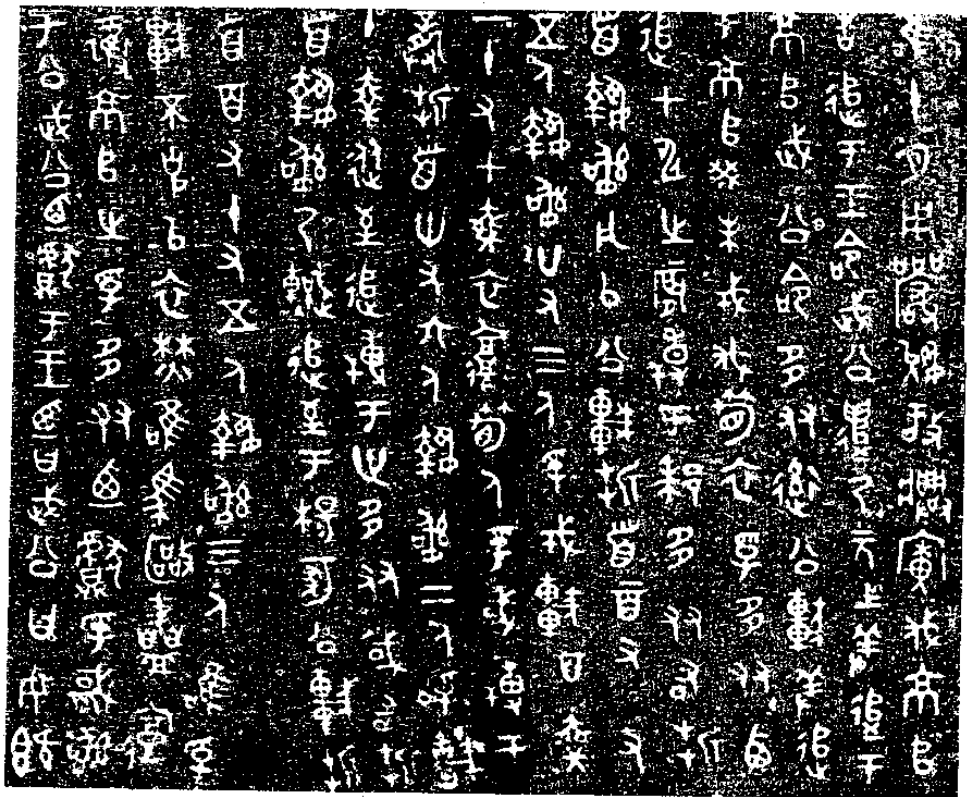 唯十月用玁狁放興廣伐京𠂤
告追于王命武公遣乃元士羞追于
京𠂤武公命多友率公車羞追
于京𠂤癸未戎伐筍衣俘多友西
追甲申之辰搏于郗多友有折
首執訊凡以公車折首二百又又
五人執訊廿又三人俘戎車百乘
一十又七乘衣復筍人俘或搏于
龔折首卅又六人執訊二人俘車
十乘從至追搏于世多友或有折
首執訊乃轃追至于楊冢公車折
首百又十又五人執訊三人唯俘
車不克以衣焚唯馬驅衋復
奪京𠂤之俘多友迺獻俘馘訊
于公武公迺獻于王迺曰武公曰女既